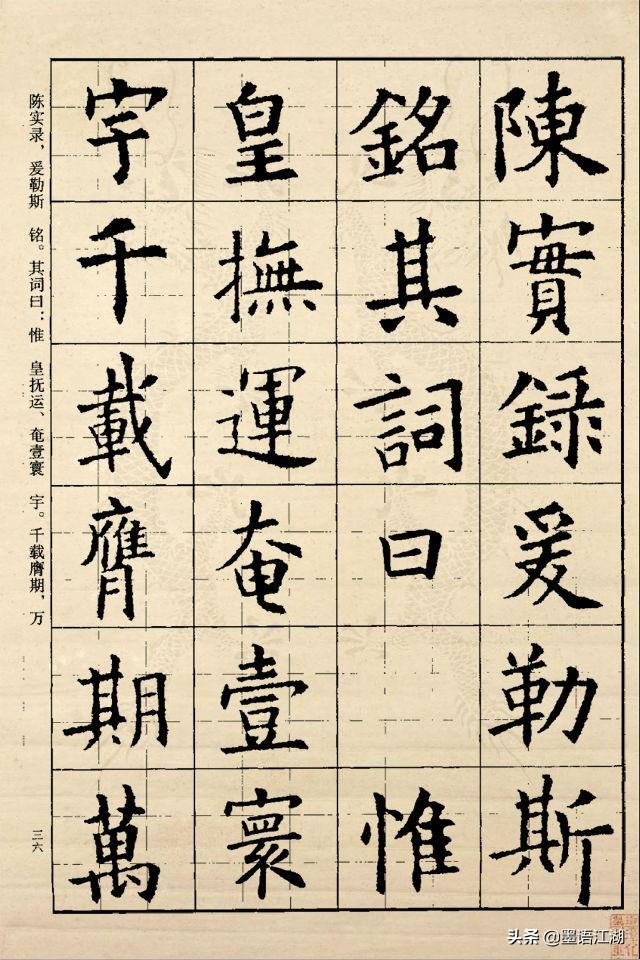 陳實録爰勒斯
銘其詞曰惟
皇撫運奄壹寰
宇千載膺期萬
陈实录，爰勒斯 铭。其词曰：惟 皇抚运、奄壹寰 宇。千载膺期，万
三六
头条 @墨语江湖